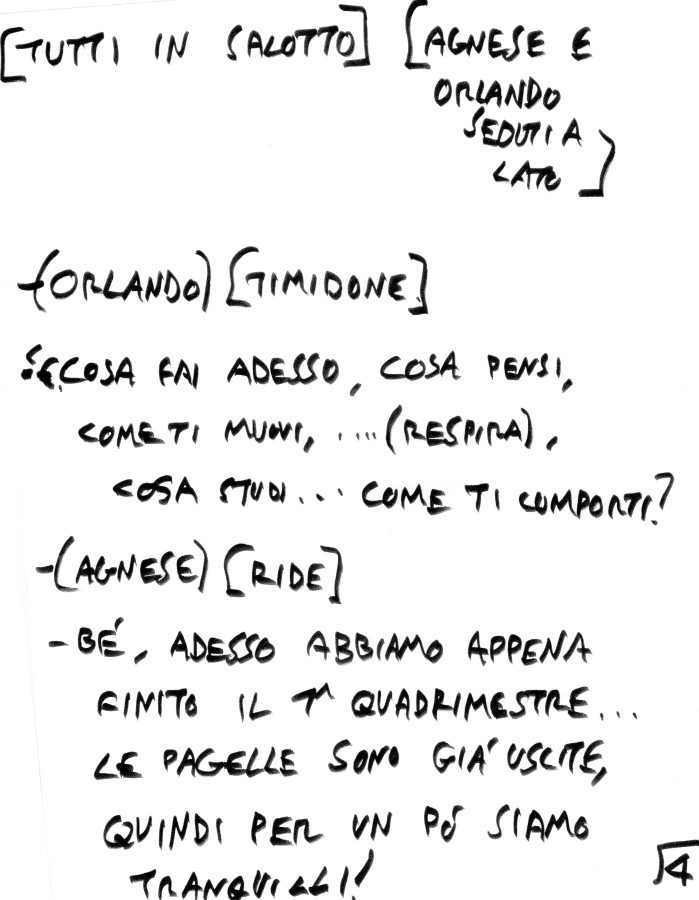 [TUTTI IN SALOTTO] [AGNESE E
ORLANDO
SEDUTI A
LATO]
-(ORLANDO) [TIMIDONE]
COSA FAI ADESSO, COSA PENSI,
COME TI MUOVI, ....(RESPIRA),
COSA STUDI... COME TI COMPORTI?
-(AGNESE) [RIDE]
- BÉ, ADESSO ABBIAMO APPENA
FINITO IL 1^ QUADRIMESTRE...
LE PAGELLE SONO GIÀ USCITE,
QUINDI PER UN PÓ SIAMO
TRANQUILLI!
4